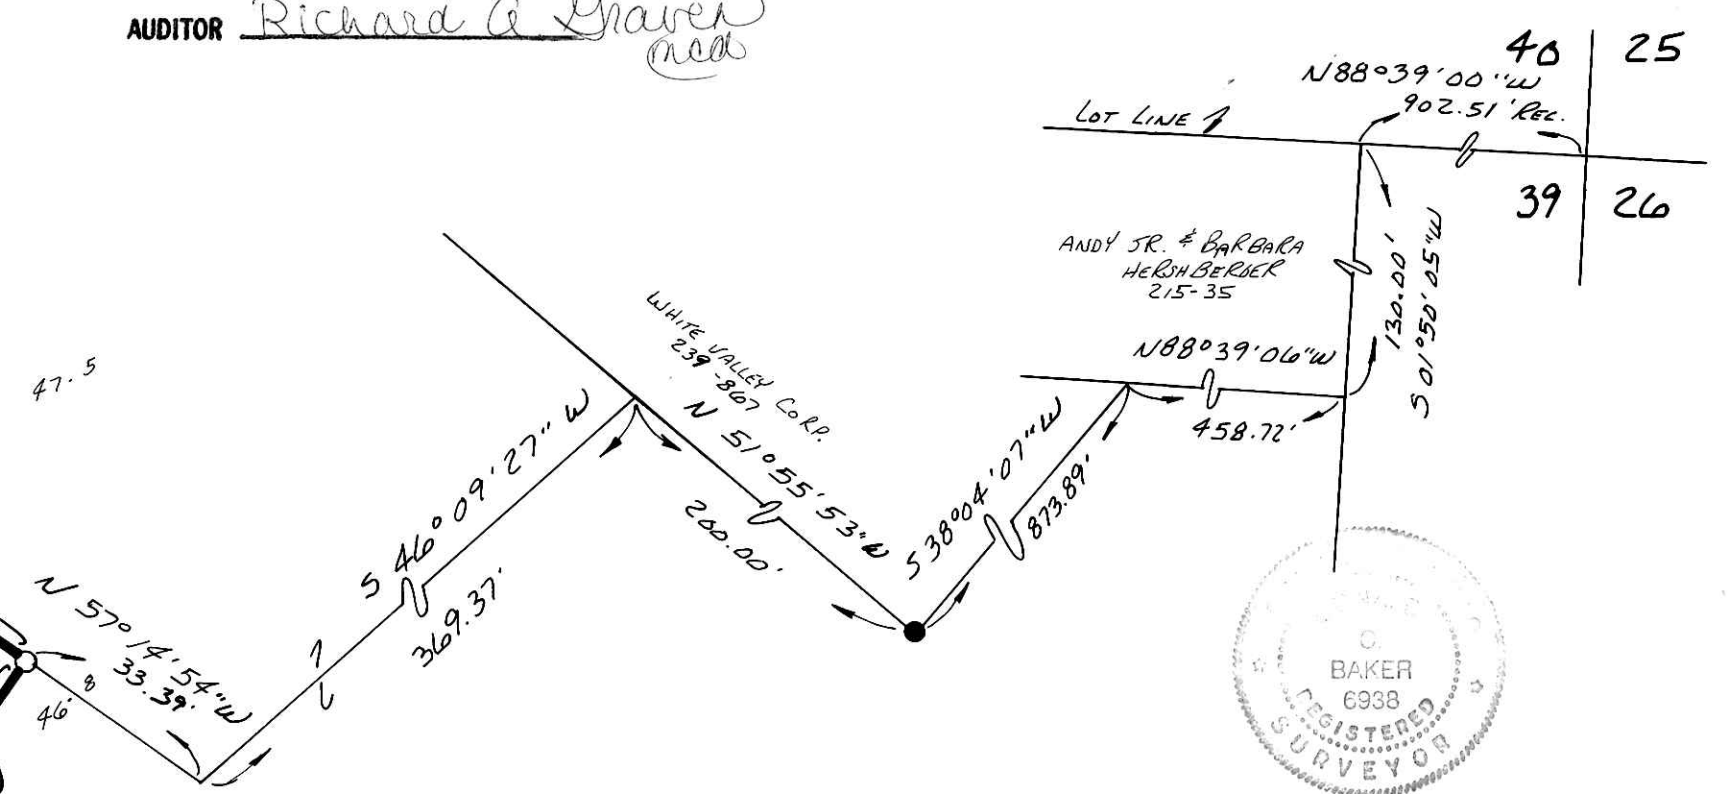 AUDITOR Richard A Graven
mcd
40 25
N88°39'00"W
902.51' REC.
LOT LINE
39 26
ANDY JR. & BARBARA
HERSHBERGER
215-35
130.00'
S 01°50'05"W
N88°39'06"W
458.72'
WHITE VALLEY CORP.
239-867
N 51°55'53"W
200.00'
S 38°04'07"W
873.89'
47.5
S 46°09'27"W
369.37'
N 57°14'54"W
33.39'
46.8
BAKER
6938
REGISTERED
SURVEYOR